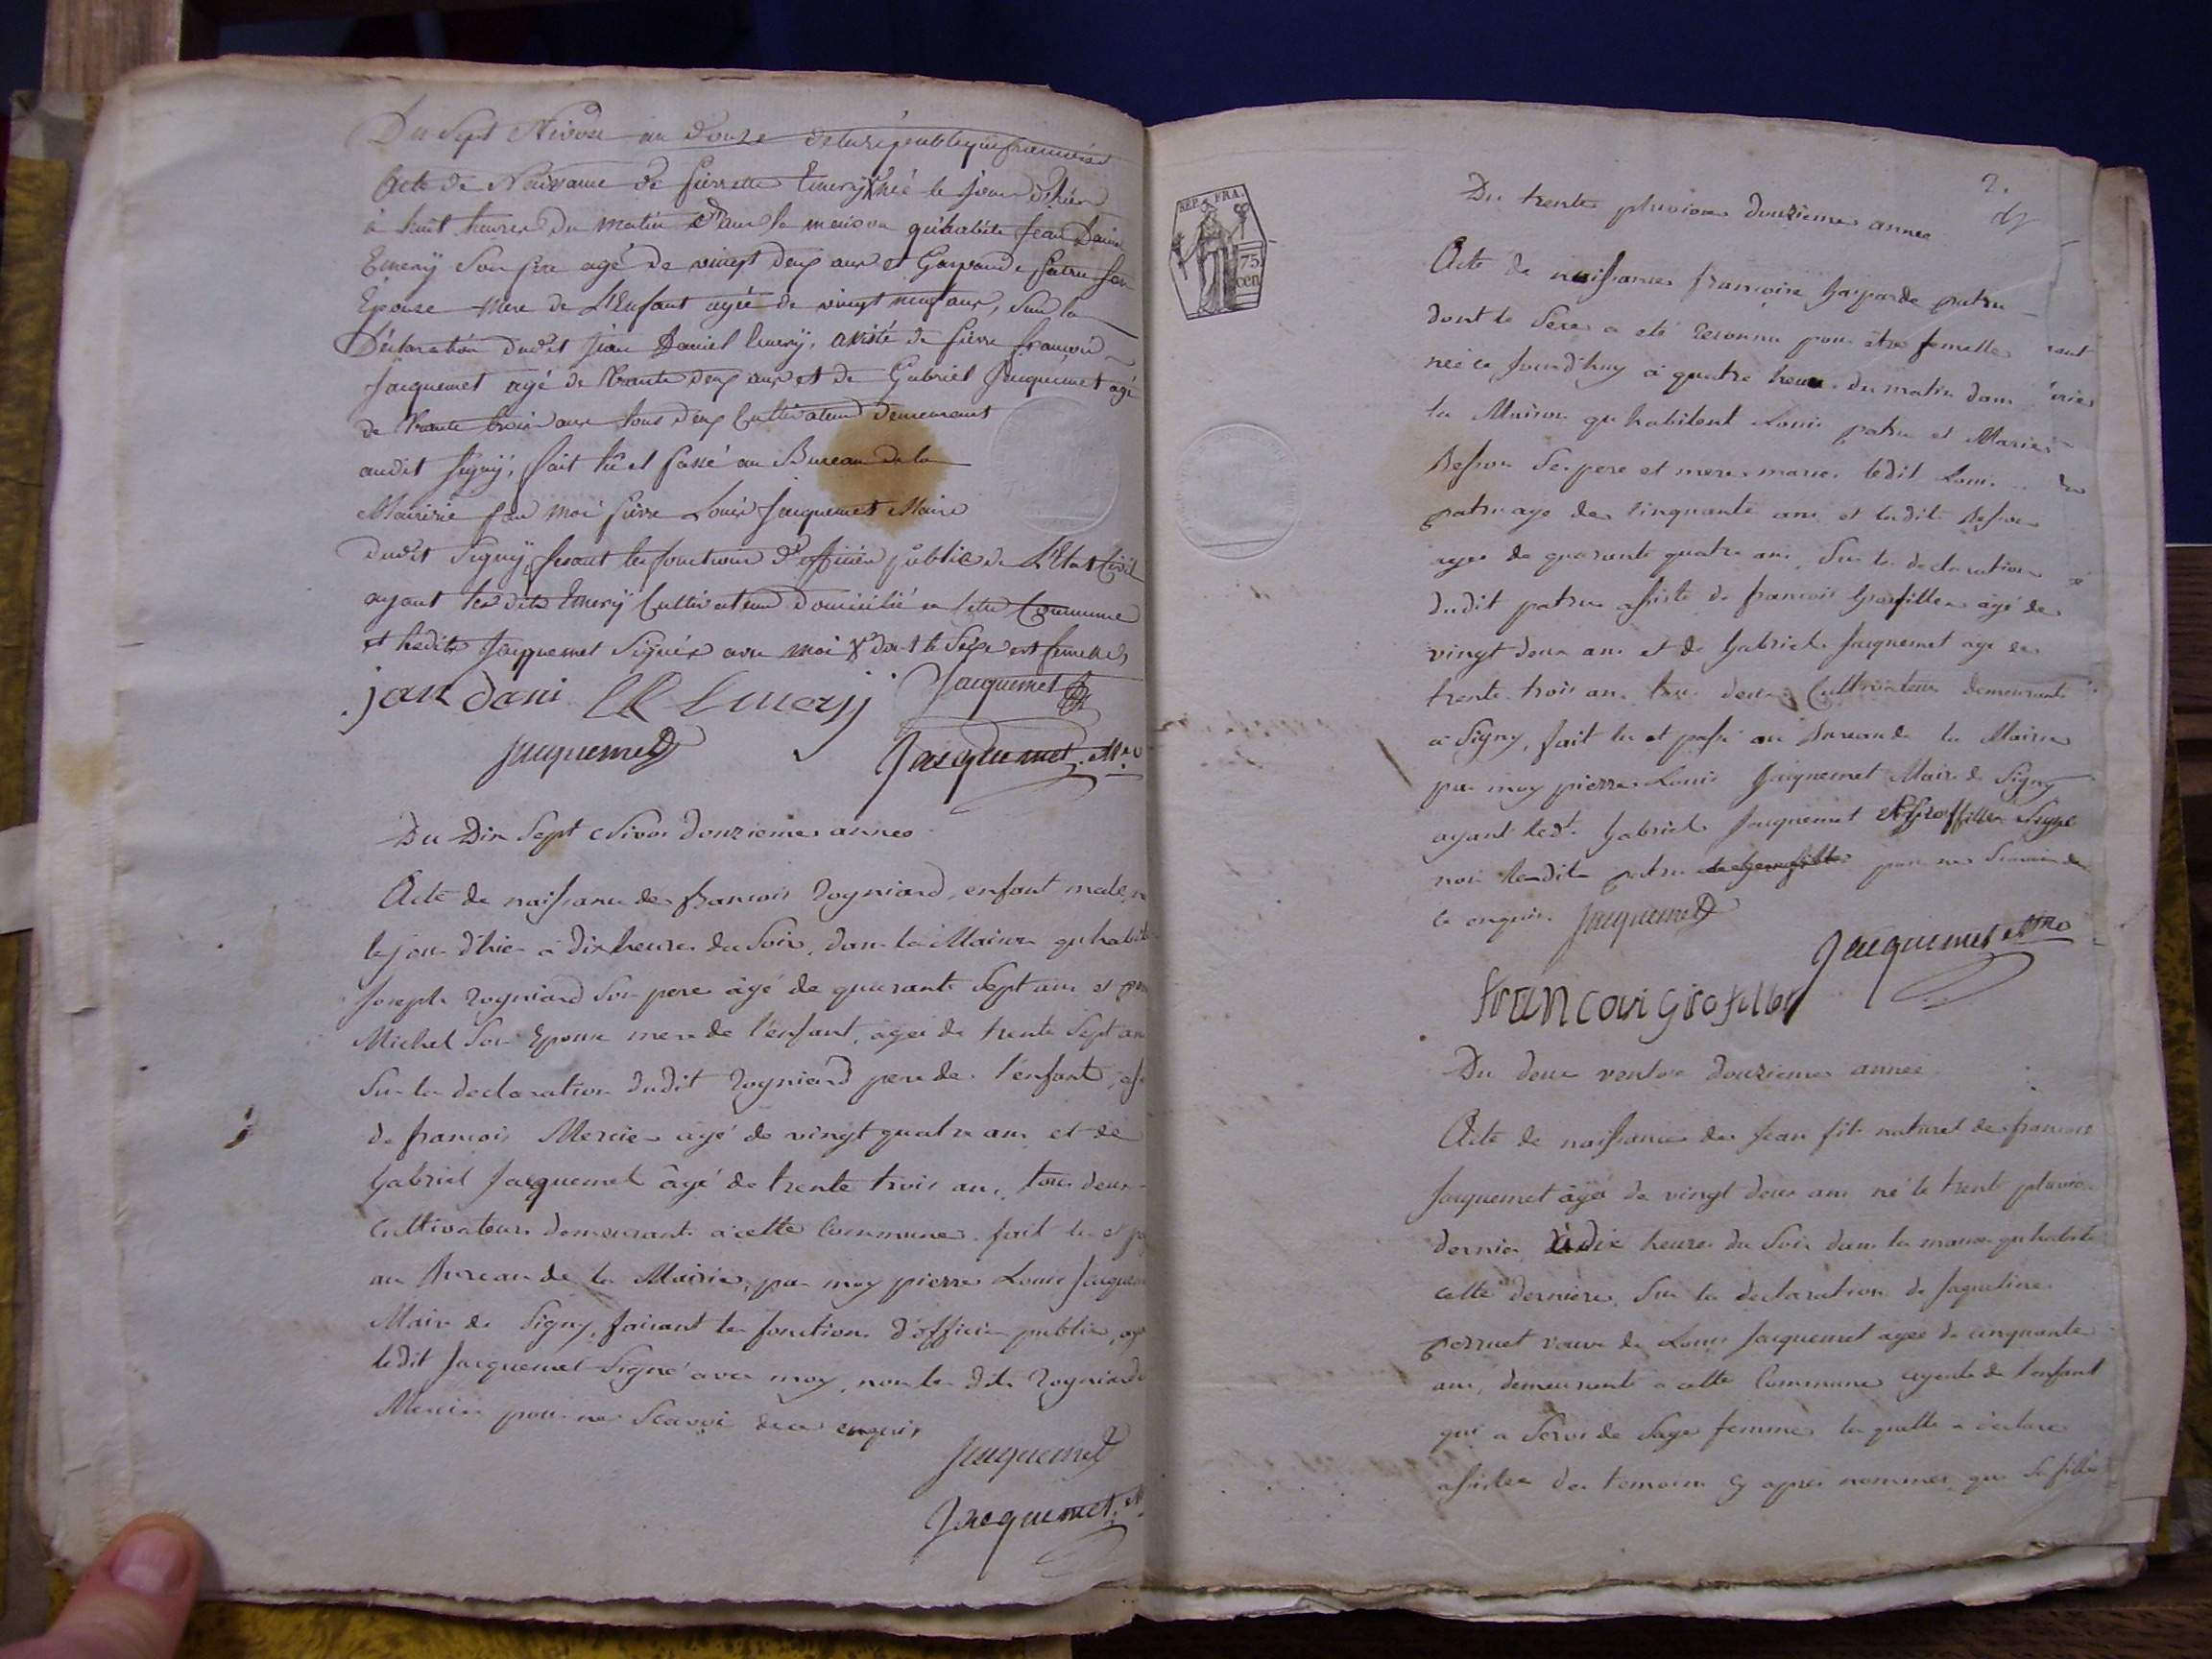 Du Sept Nivose an Douze de la republique francaise
Acte de Naissance de Pierrette Emery X née le jour d'hier
à huit heures du matin dans la maison qu'habite Jean Daniel
Emery Son pere agé de vingt deux ans et Gasparde Patru Son
Epouse mere de L'Enfant agée de vingt neuf ans, Sur la
Déclaration dudit Jean Daniel Emery, assisté de Pierre françois
Jacquemet agé de trante deux ans et de Gabriel Jacquemet agé
de trante trois ans tous deux Cultivateurs demeurants
audit Signy, fait lu et passé au Bureau de la
Mairie par moi Pierre Louis Jacquemet Maire
dudit Signy, faisant les fonctions d'officier public de L'Etat Civil
ayant les dits Emery Cultivateur domicilié en cette Commune
et lesdits Jacquemet Signés avec moi X dont le Sexe est femelle
jan dani El Emery Jacquemet
Jacquemet Jacquemet Mre
Du Dix Sept Nivos douzieme annee
Acte de naissance de francois Rogniard, enfant male, n
le jour d'hier à dix heures du Soir, dans la Maison qu'habite
Joseph Rogniard Son pere âgé de quarante Sept ans et
Michel Son Epouse mere de l'enfant, agée de trente Sept ans
Sur la declaration dudit Rogniard pere de l'enfant, ass
de francois Mercier âgé de vingt quatre ans et de
Gabriel Jacquemet âgé de trente trois ans, tous deux
Cultivateurs demeurant a cette Commune, fait lu et p
au Bureau de la Mairie, par moy pierre Louis Jacquem
Maire de Signy, faisant les fonctions d'officier public, ay
ledit Jacquemet Signé avec moy, non les dits Rogniard
Mercier pour ne Scavoir de ce enquis
Jacquemet
Jacquemet M
2.
REP. FRA.
75
cen
Du trente pluviose douzieme annee
Acte de naissance francoise Gasparde patru
dont le Sexe a eté reconnu pour être femelle
née ce Jourd'huy à quatre heures du matin dans
la Maison qu'habitent Louis patru et Marie
Ses pere et mere mariés ledit Louis
patru age de Cinquante ans et ladite
agee de quarante quatre ans Sur la declaration
dudit patru assisté de francois Grosfiller âgé de
vingt deux ans et de Gabriel Jacquemet age de
trente trois ans tous deux Cultivateurs demeurant
à Signy, fait lu et passé au Bureau de la Mairie
par moy pierre Louis Jacquemet Maire de Signy
ayant ledt. Gabriel Jacquemet et Grosfiller Signé
non ledit patru pour ne Scavoir de
ce enquis. Jacquemet
Jacquemet Mre
francoi Grosfiller
Du deux ventose douzieme annee
Acte de naissance de Jean fils naturel de francoise
Jacquemet âgée de vingt deux ans né le trente pluviose
dernier à dix heures du Soir dans la maison qu'habite
cette derniere, Sur la declaration de Jaqueline
pernet veuve de Louis Jacquemet agee de cinquante
ans, demeurante a cette Commune ayeule de l'enfant
qui a Servi de Sage femme la quelle a declaré
assistee des temoins cy apres nommés que Sa fille